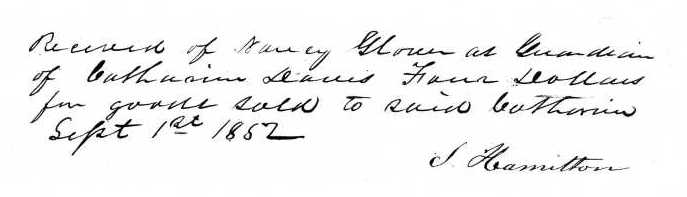 Received of Nancy Glover as Guardian
of Catharine Davis Four Dollars
for goods sold to said Catharine
Sept 1st 1852
S. Hamilton